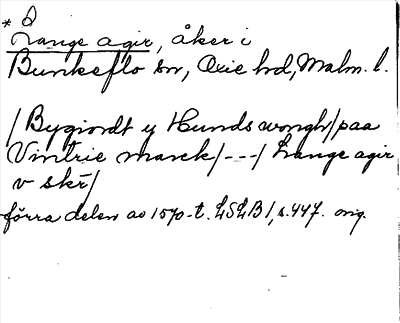 * Lange agir, åker i
Bunkeflo sn, Oxie hd, Malm. l.
/ Bygiordt y Hunds wongh / paa
Vintrie marck / - - - / Lange agir
v skr /
förra delen av 1570-t. LSLB 1, s. 447. orig.